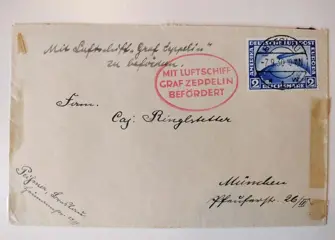 Mit Luftschiff „Graf Zeppelin"
zu befördern.
MIT LUFTSCHIFF
GRAF ZEPPELIN
BEFÖRDERT
DEUTSCHE LUFTPOST
2
REICHSMARK
Firma.
Caj. Ringlstetter
München
Pfeuferst. 26/III